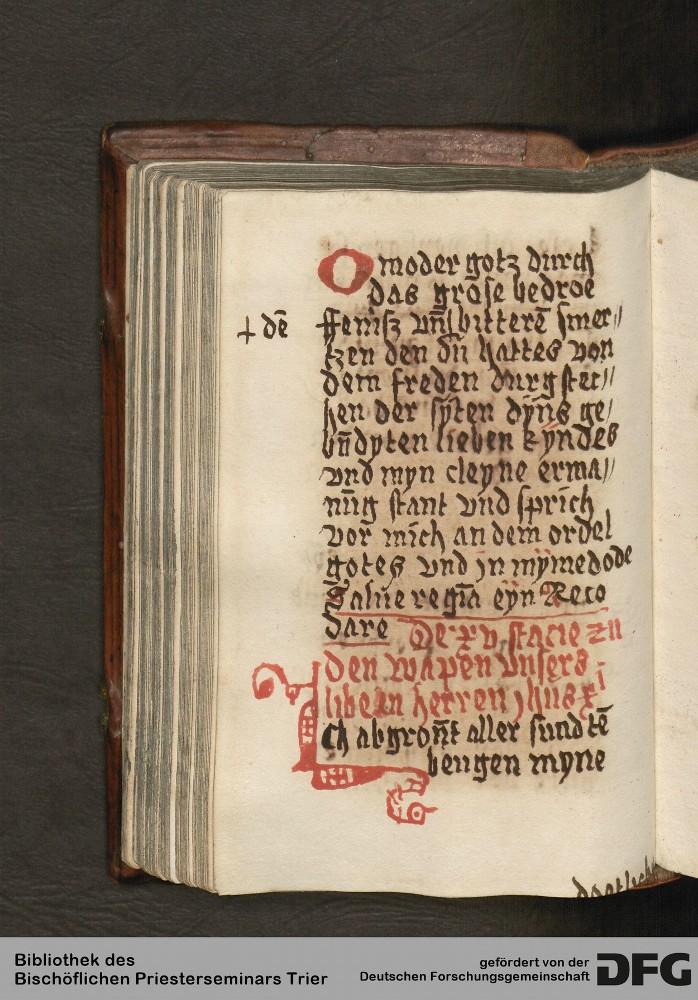 O moder gotz durch
das grose bedroe
+ dē
ffenisz vn̄ bitterē smer〃
tzen den dū hattes von
dem freden durg stec〃
hen der sÿten dyn̄s ge/
bn̄dyten lieben kÿndes
vnd myn cleyne erma〃
nūg stant vnd sprich
vor mich an dem ordel
gotes vnd jn mÿmedode
Salue regīa eÿn Reco
dare De xv stacie zu
den wapen vnsers
libeen herren jhus xi
Ich abgron̄t aller sund tē
beugen myne
Bibliothek des
Bischöflichen Priesterseminars Trier
gefördert von der
Deutschen Forschungsgemeinschaft DFG